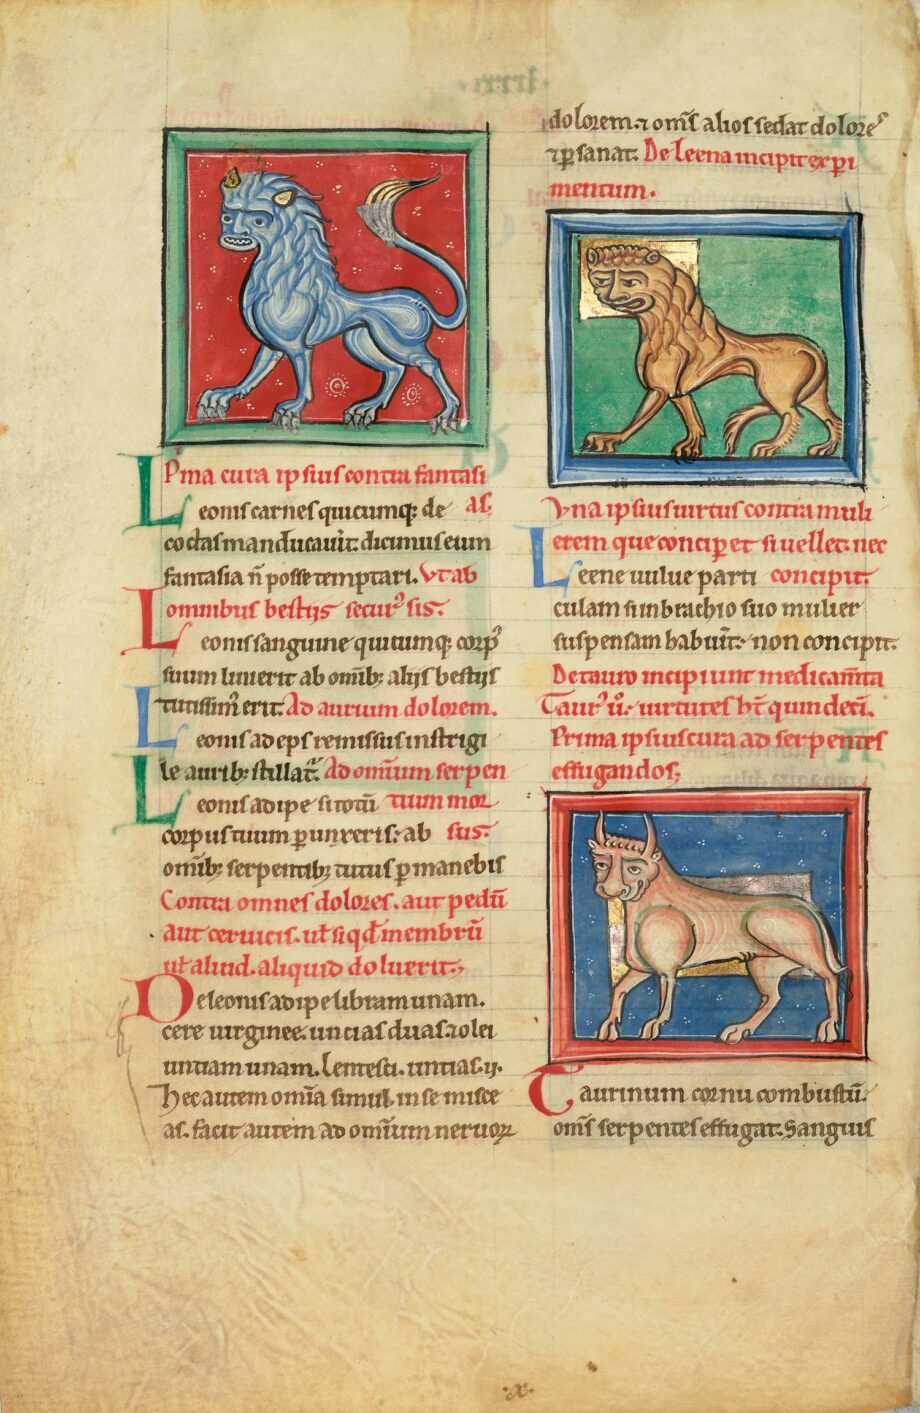 Pma cura ipsius contra fantasi
Leonis carnes quicumq; de as;
coctas manducauit dicimus eum
fantasia n̄ posse temptari. Vt ab
omnibus bestijs secur᾽ sis.
Leonis sanguine quicumq; corp᾽
suum linierit ab omīb; alijs bestijs
tutissim᾽ erit. Ad aurium dolorem.
Leonis adeps remissus in strigi
le aurib; stillat᾽. Ad omnium serpen
Leonis adipe si totū tium mor
corpus tuum punxeris: ab sus.
omīb; serpentib; tutus pmanebis
Contra omnes dolores. aut pedū
aut ceruicis. uł si qđ membrū
uł aliud. aliquid doluerit;
De leonis adipe libram unam.
cere uirginee. uncias duas. ⁊ olei
untiam unam. Lentesci. untias. ij.
hec autem om̄ia simul. in se misce
as. facit autem ad omnium neruoꝝ
dolorem. ⁊ om̄s alios sedat dolores
⁊ psanat. De leena incipit expi
mentum.
Vna ipsius uirtus contra muli
erem que concipet si uellet. nec
Leene uulue parti concipit.
culam si in brachio suo mulier
suspensam habuit: non concipit.
De tauro incipiunt medicam̄ta
Taur᾽ ū. uirtutes hn̄t quindeci.
Prima ipsius cura ad serpentes
effugandos;
Taurinum cornu combustū.
om̄s serpentes effugat. Sanguis
.x.